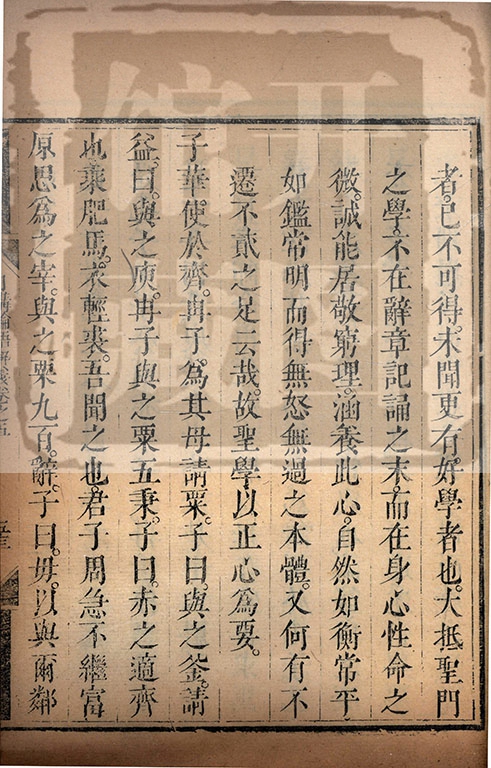 者。已不可得。未聞更有好學者也。大抵聖門
之學。不在辭章記誦之末。而在身心性命之
微。誠能居敬窮理。涵養此心。自然如衡常平
如鑑常明而得無怒無過之本體。又何有不
遷不貳之足云哉。故聖學以正心爲要。
子華使於齊。冉子爲其母請粟。子曰。與之釜。請
益。曰。與之庾。冉子與之粟五秉。子曰。赤之適齊
也。乘肥馬。衣輕裘。吾聞之也。君子周急不繼富
原思爲之宰。與之粟九百。辭。子曰。毋。以與爾鄰